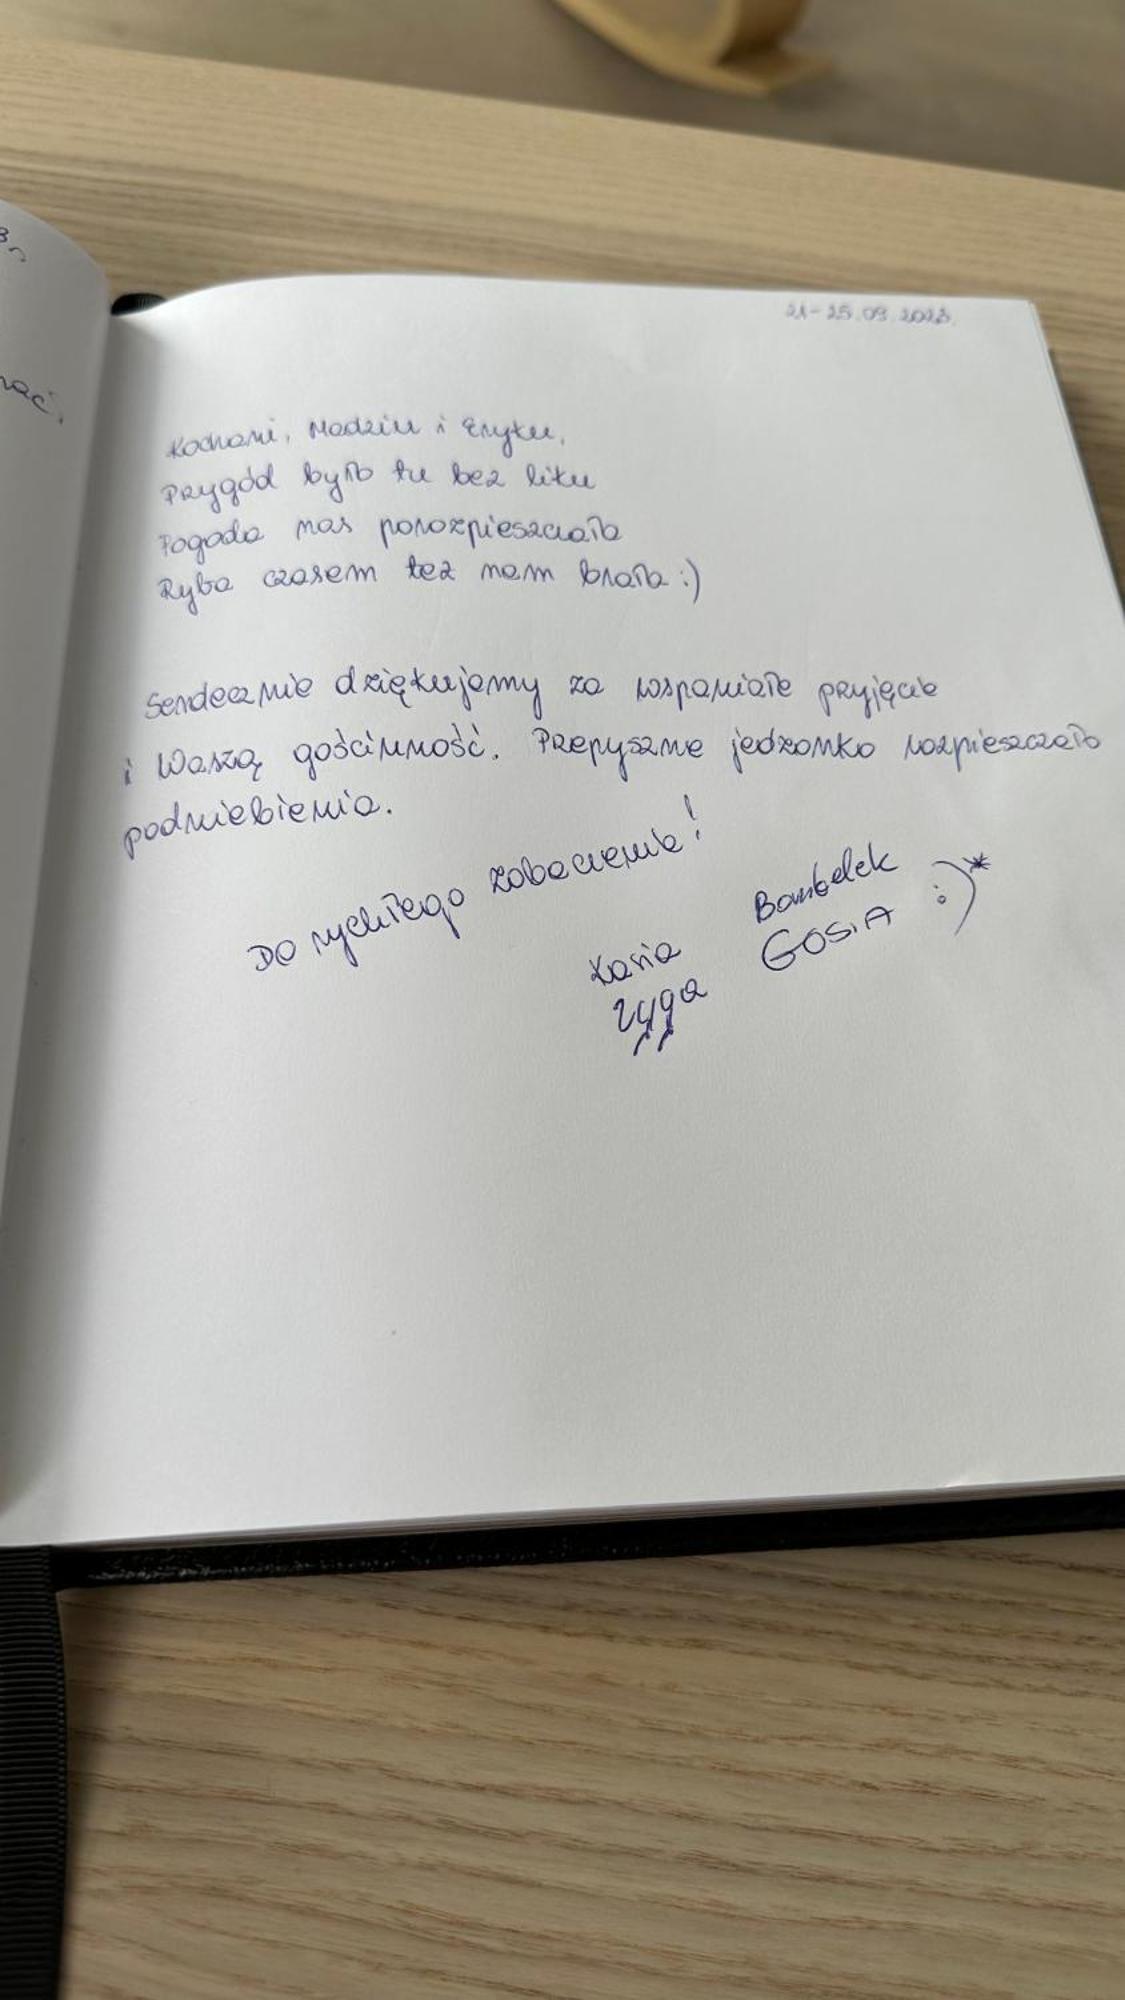 21-25.09.2023.
Kochani, Madziu i Eryku,
Przygód było tu bez liku
Pogoda nas porozpieszczała
Ryba czasem też nam brała :)
Serdecznie dziękujemy za wspaniałe przyjęcie
i Waszą gościnność. Przepyszne jedzonko rozpieszczało
podniebienia.
Do rychłego zobaczenia!
Bambelek
GOSIA :)*
Kasia
Zyga